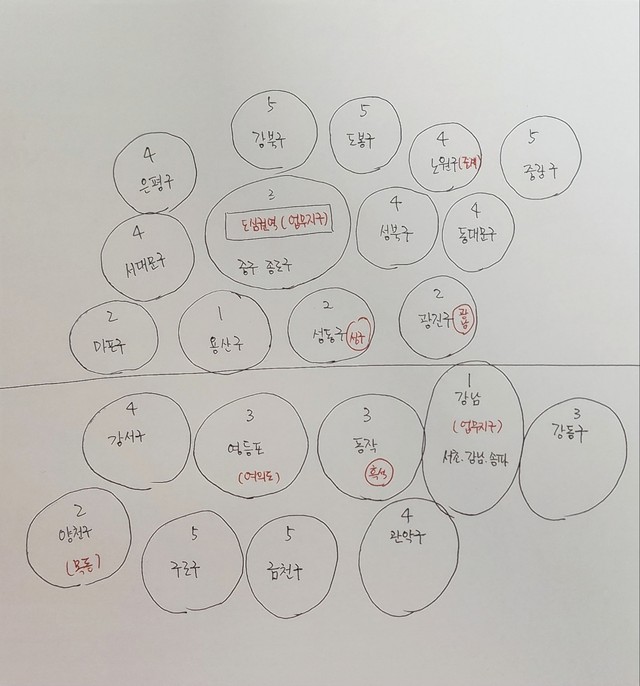 5
강북구
5
도봉구
4
노원구(중계)
5
중랑구
4
은평구
3
도심권역 (업무지구)
중구 종로구
4
성북구
4
동대문구
4
서대문구
2
마포구
1
용산구
2
성동구 성수
2
광진구 광장
4
강서구
3
영등포
(여의도)
3
동작
흑석
1
강남
(업무지구)
서초.강남.송파
3
강동구
2
양천구
(목동)
5
구로구
5
금천구
4
관악구